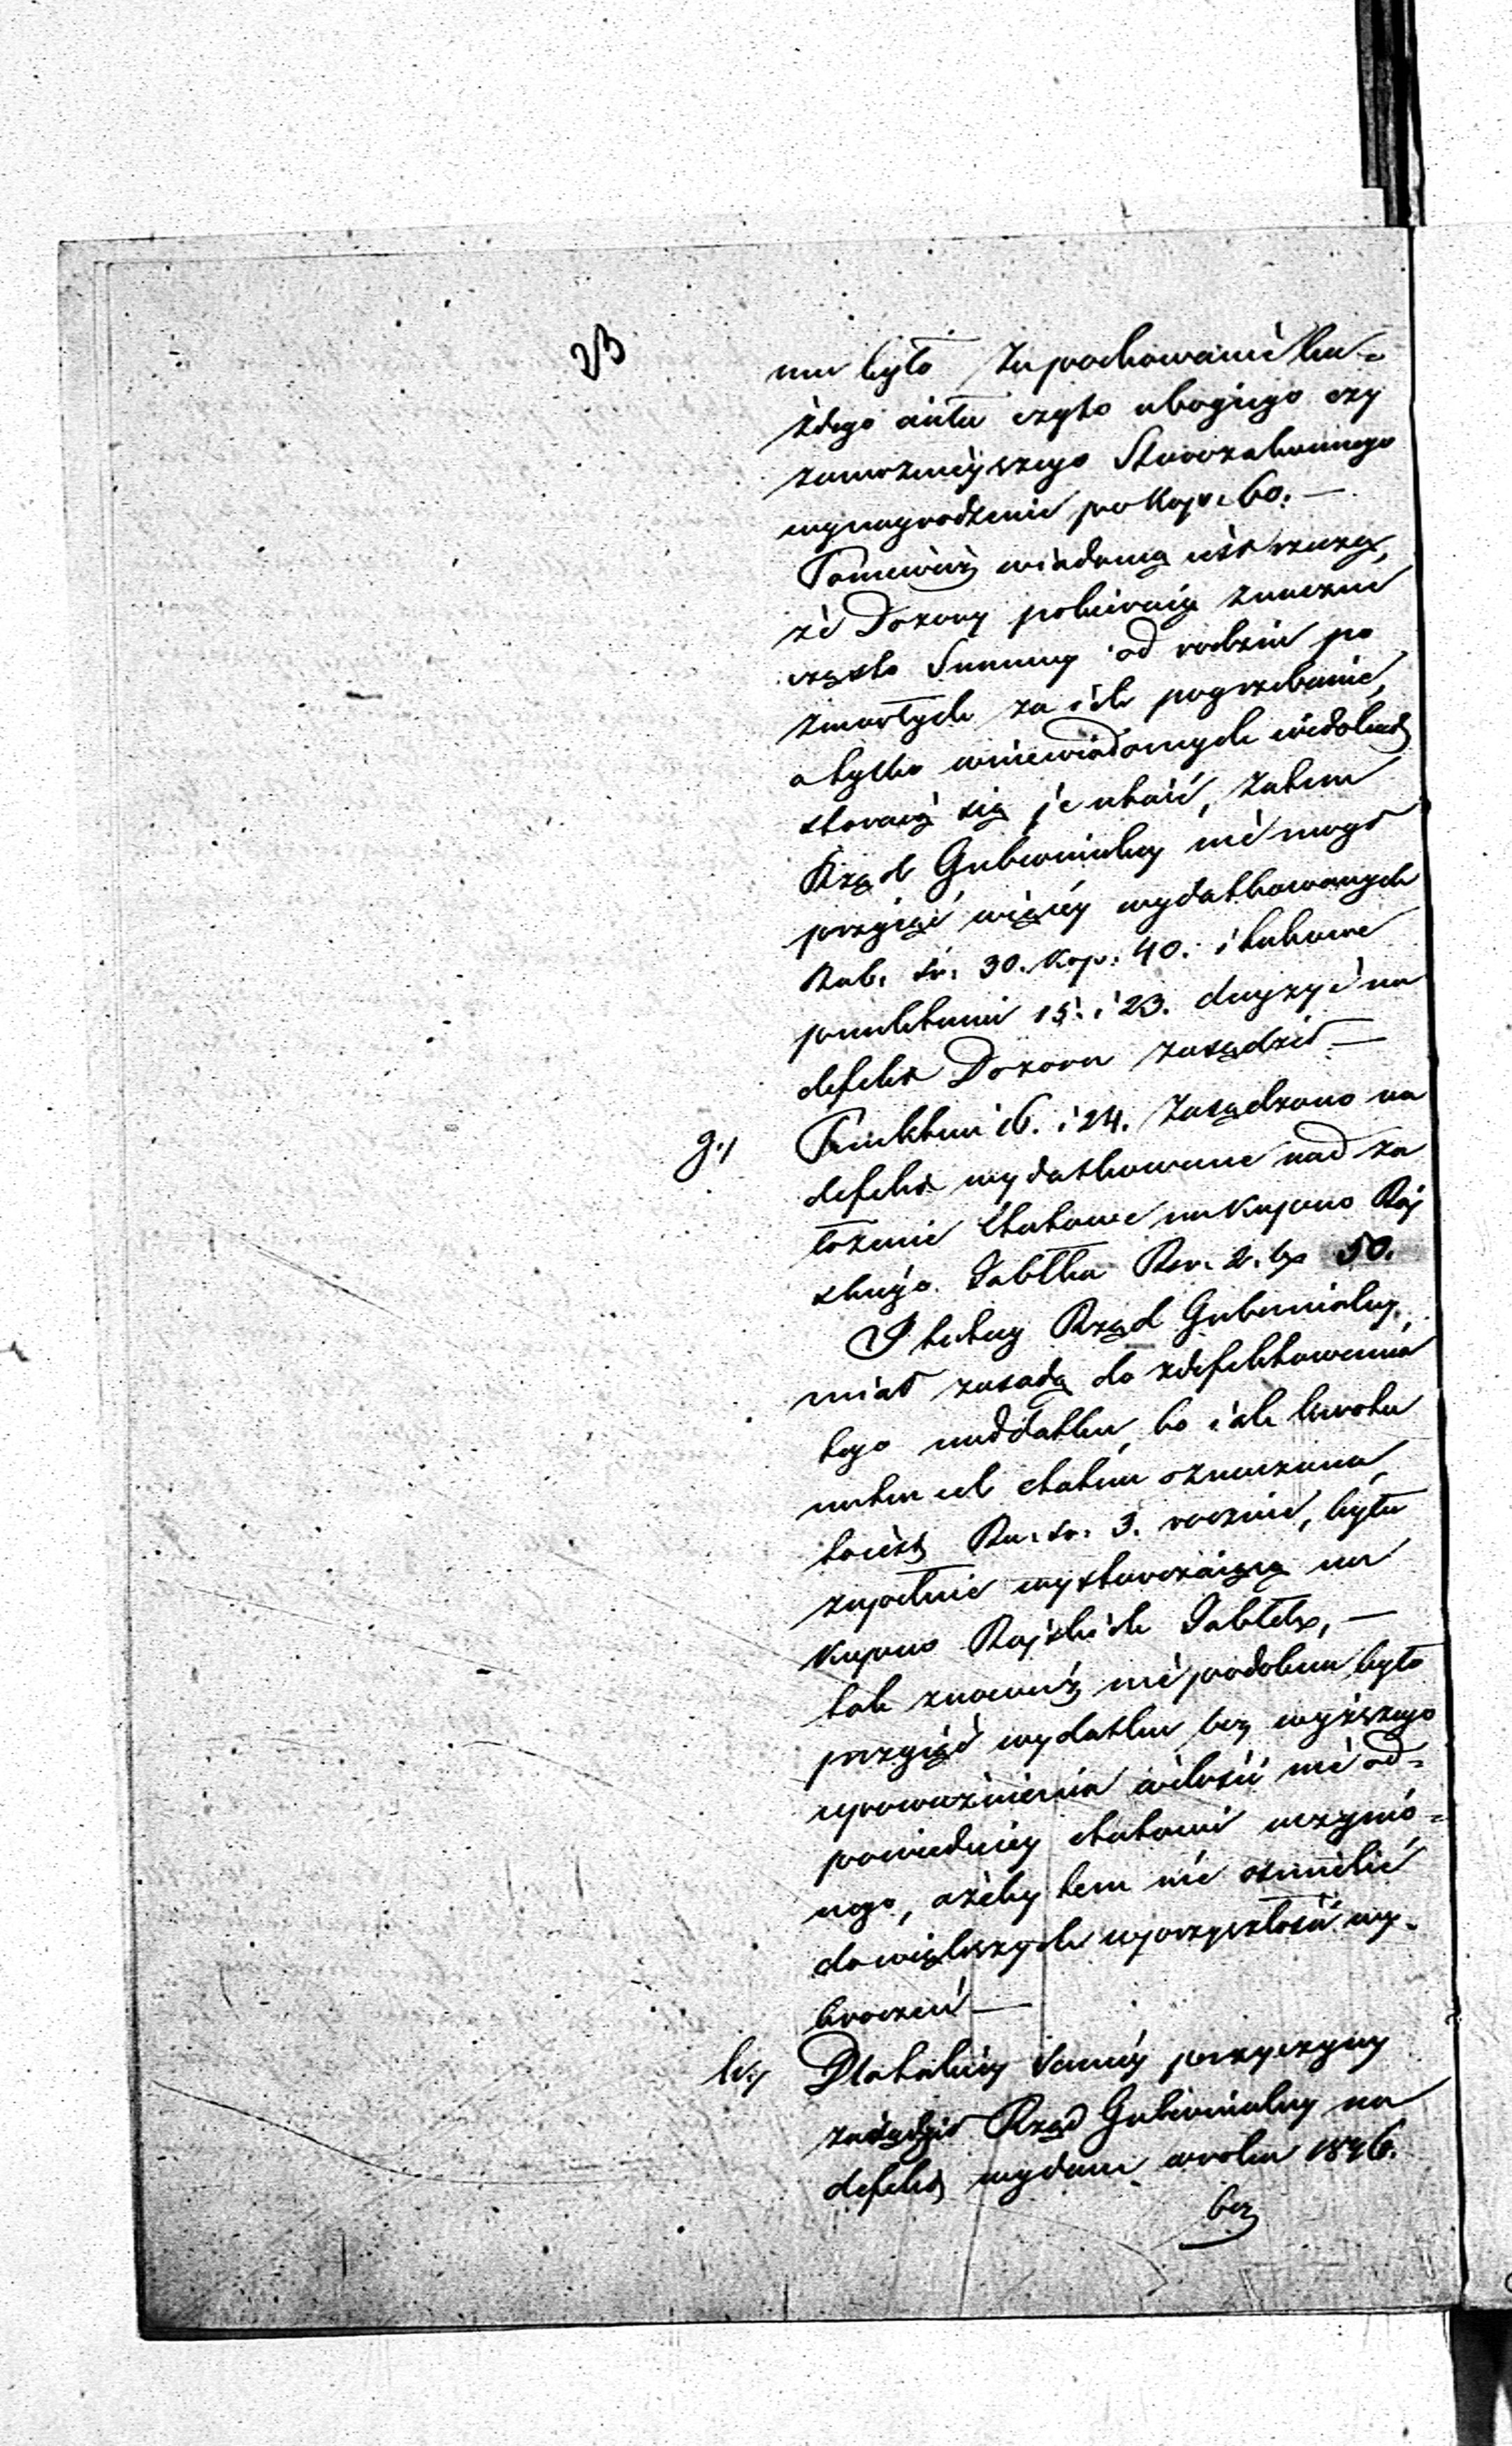 23
mu było za pochowanie ka-
żdego ciała czyto ubogiego czy
zamożniejszego Starozakonnego
wynagrodzenie po Kop. 60. —
Ponieważ wiadomą iest rzeczą,
że Dozory pobieraią znaczne
często Summy od rodzin po
zmarłych za ich pogrzebanie,
a tylko w niewiadomych
staraią się je utaić, zatem
Rząd Gubernialny nie mógł
przyiąć więcey wydatkowanych
Rub. sr. 30. Kop. 40. i takowe
punktami 15. i 23. decyzyi na
defekt Dozoru zasądził —
g./ Punktem 16. i 24. zasądzono na
defekt wydatkowane nad za
łożenie Etatowe na Kupno Raj
skiego Jabłka Rsr. 2. kp 50.
I tutay Rząd Gubernialny,
miał zasadę do zdefektowania
tego naddatku, bo iak kwota
na ten cel etatem oznaczona,
to iest Ru. sr. 3. rocznie, była
zupełnie wystarczaiącą na
Kupno Rajskich Jabłek, —
tak znowuż niepodobna było
przyiąć wydatku bez wyższego
upoważnienia w ilości nie od-
powiedniey etatowi uczynio-
nego, ażeby tem nie ośmielić
do większych w przyszłości wy-
kroczeń —
h./ Dla takiey samey przyczyny
zasądził Rząd Gubernialny na
defekt wydane w roku 1846.
bez